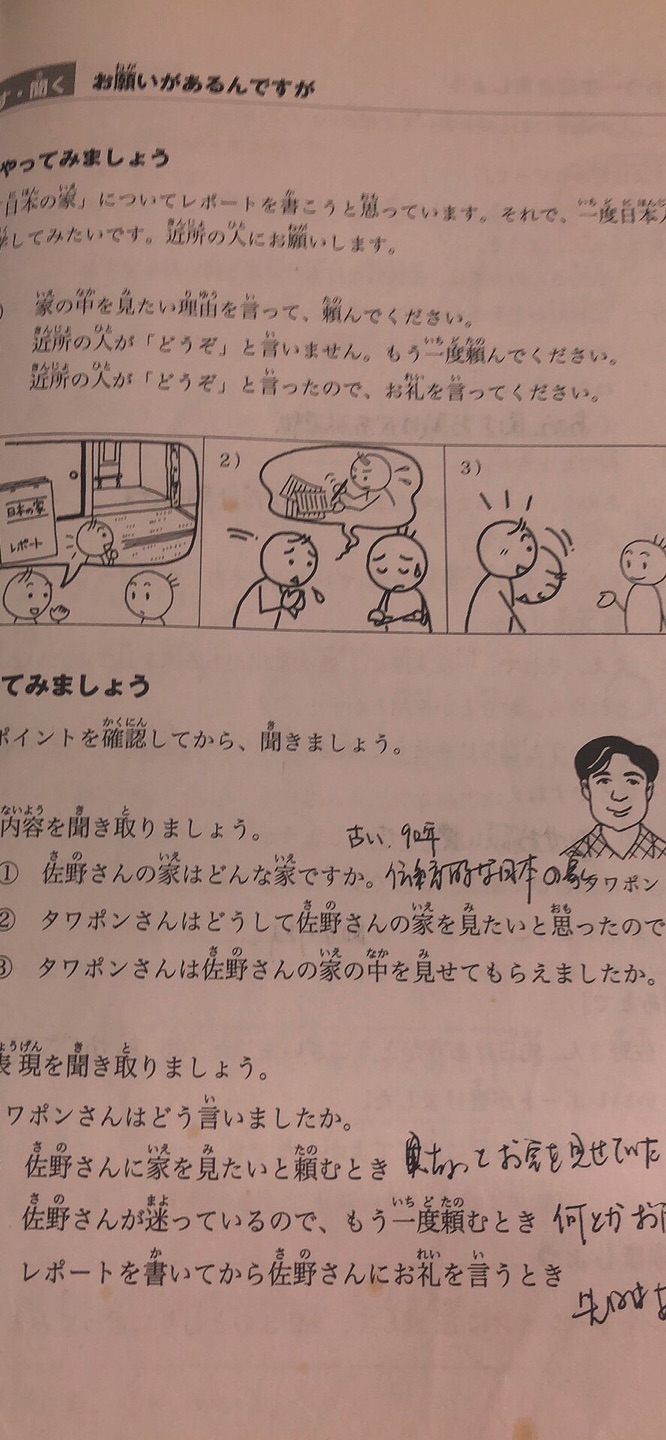 す・聞く お願いがあるんですが
やってみましょう
「日本の家」についてレポートを書こうと思っています。それで、一度日本人
してみたいです。近所の人にお願いします。
家の中を見たい理由を言って、頼んでください。
近所の人が「どうぞ」と言いません。もう一度頼んでください。
近所の人が「どうぞ」と言ったので、お礼を言ってください。
日本の家
レポート
2)
3)
てみましょう
ポイントを確認してから、聞きましょう。
内容を聞き取りましょう。
古い、90年
① 佐野さんの家はどんな家ですか。伝統的な日本の家
タワポン
② タワポンさんはどうして佐野さんの家を見たいと思ったので
③ タワポンさんは佐野さんの家の中を見せてもらえましたか。
表現を聞き取りましょう。
ワポンさんはどう言いましたか。
佐野さんに家を見たいと頼むとき
を見せていた
佐野さんが迷っているので、もう一度頼むとき 何とかお
レポートを書いてから佐野さんにお礼を言うとき